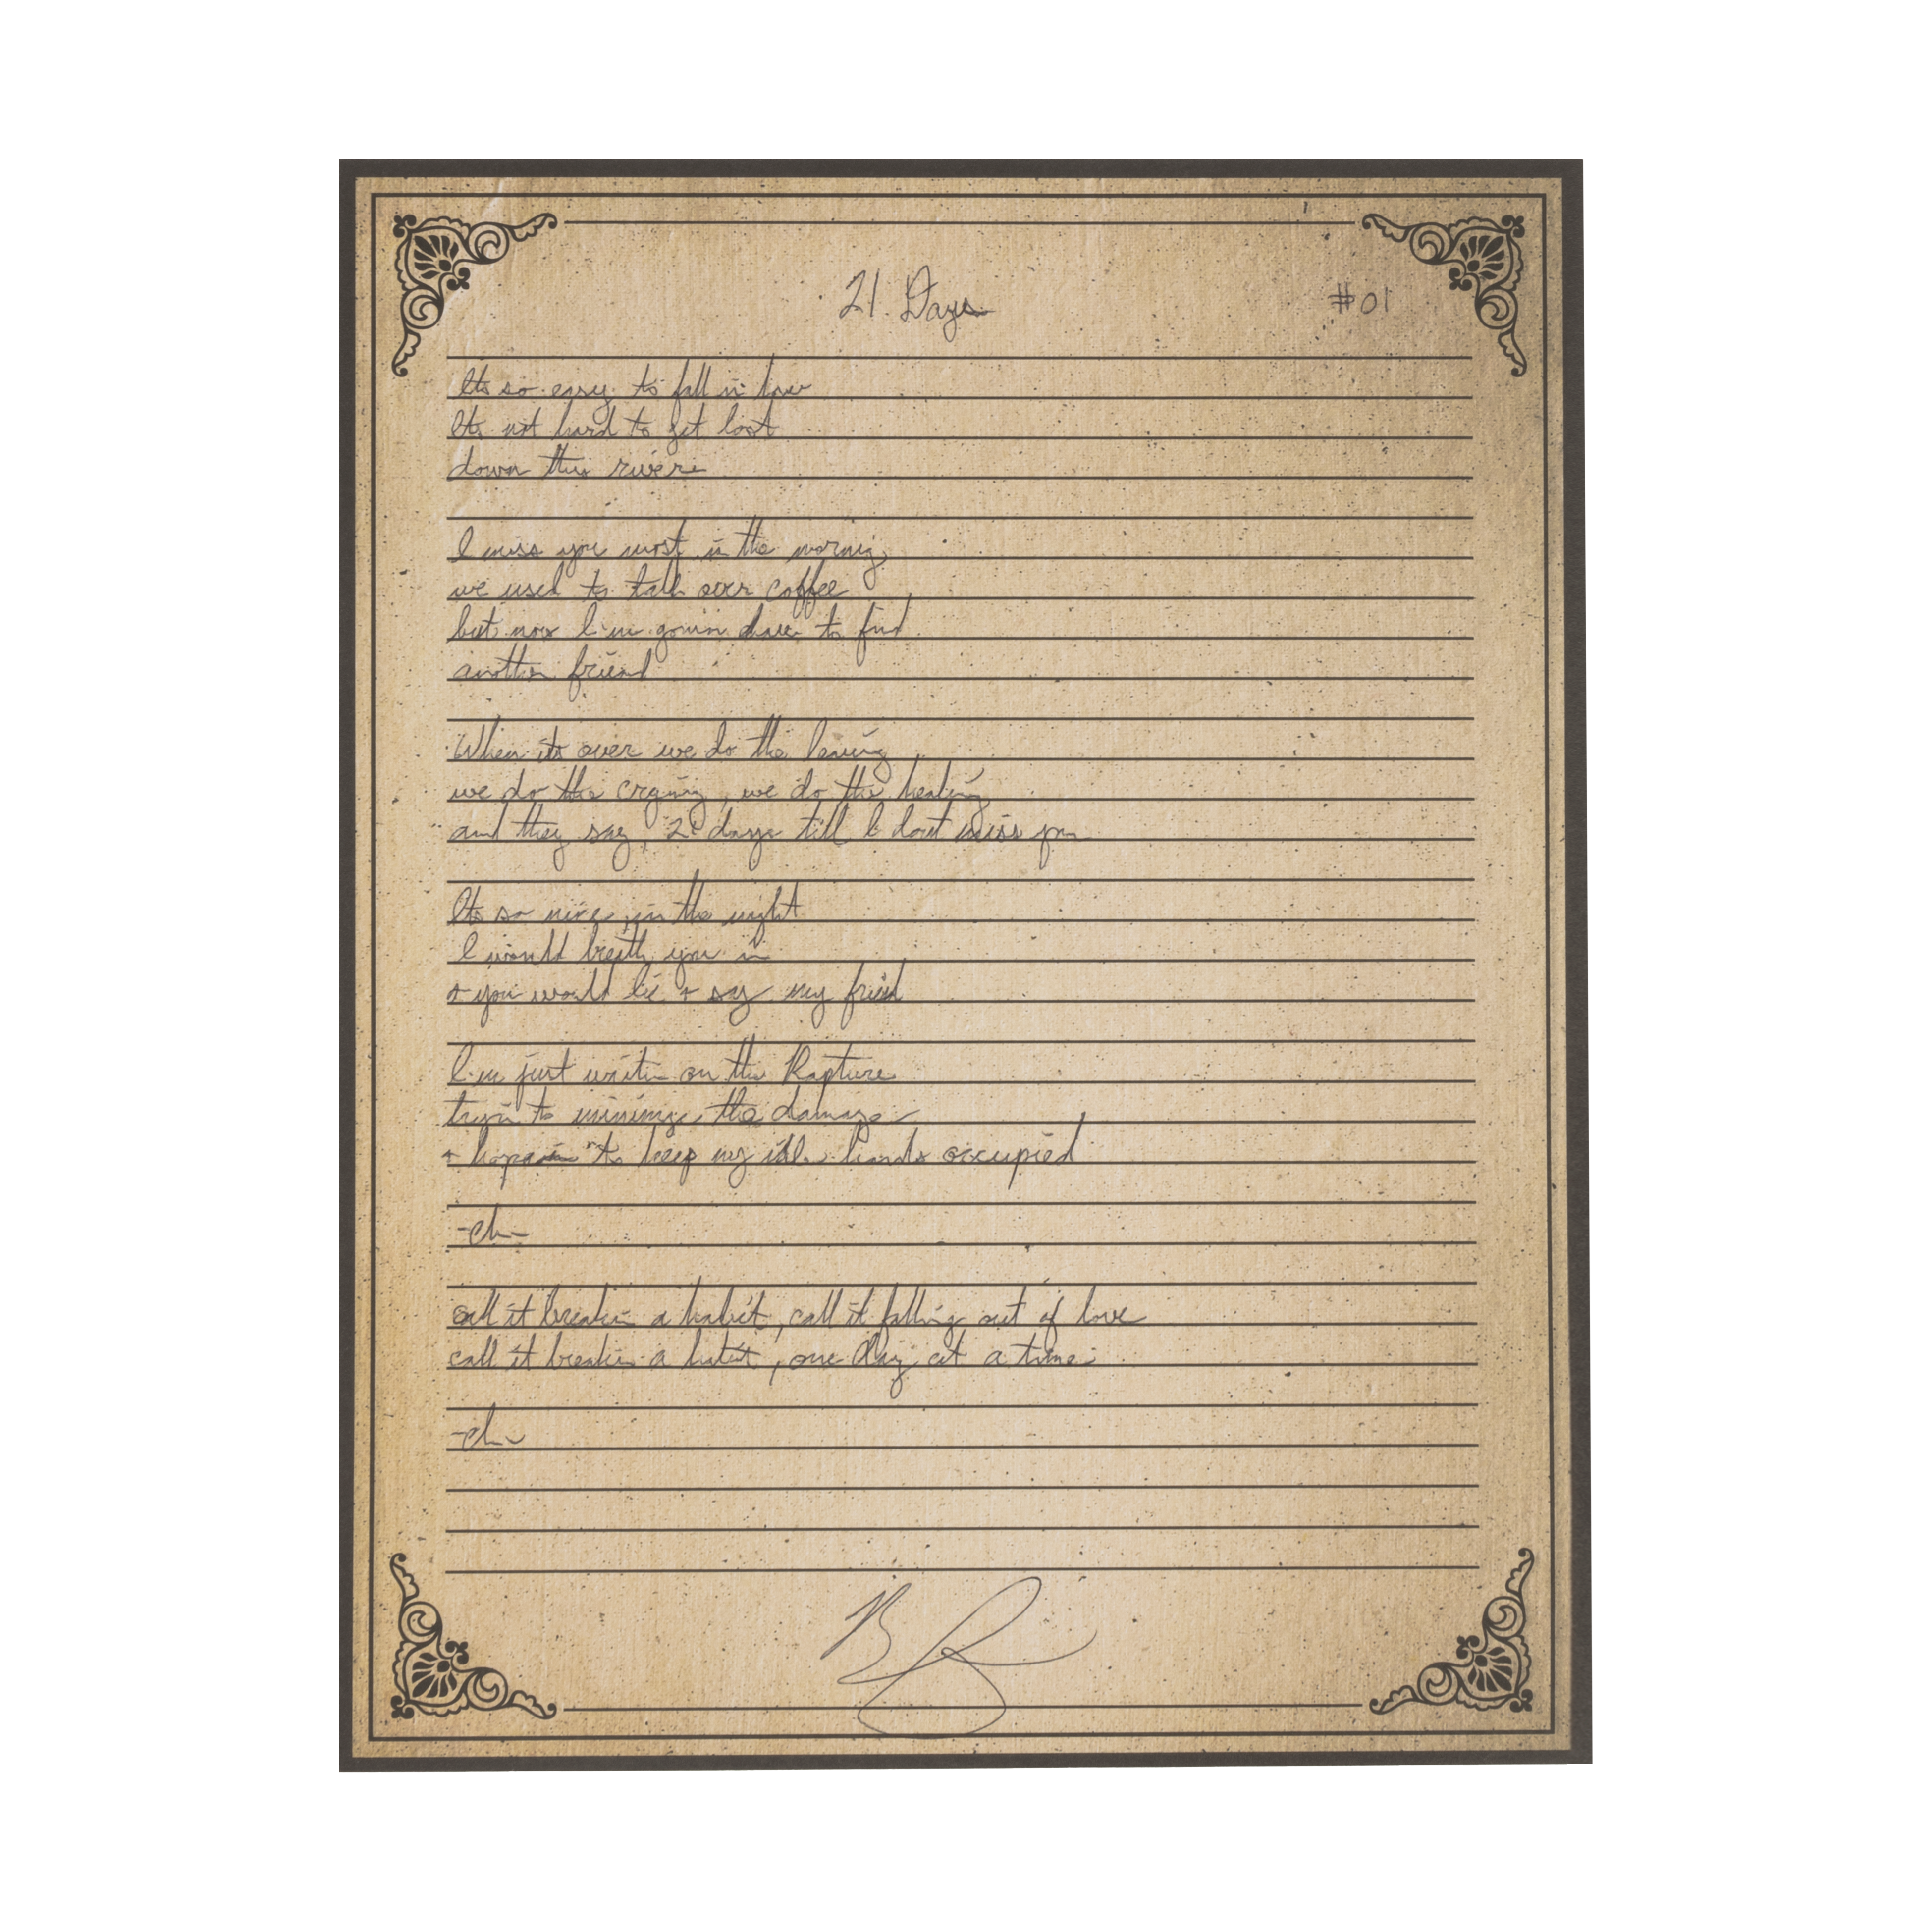 21 Days
#01
Its so easy to fall in love
Its not hard to get lost
down this river
I miss you most in the morning
we used to talk over coffee
but now I'm gonna have to find
another friend
When its over we do the leaving
we do the crying, we do the healing
and they say, 21 days till I dont miss you
Its so nice, in the night
I would breath you in
+ you would lie + say my friend
I'm just waitin on the Rapture
tryin to minimize the damage
+ hopin to keep my idle hands occupied
-ch-
call it breakin a habit, call it falling out of love
call it breakin a habit, one day at a time
-ch-